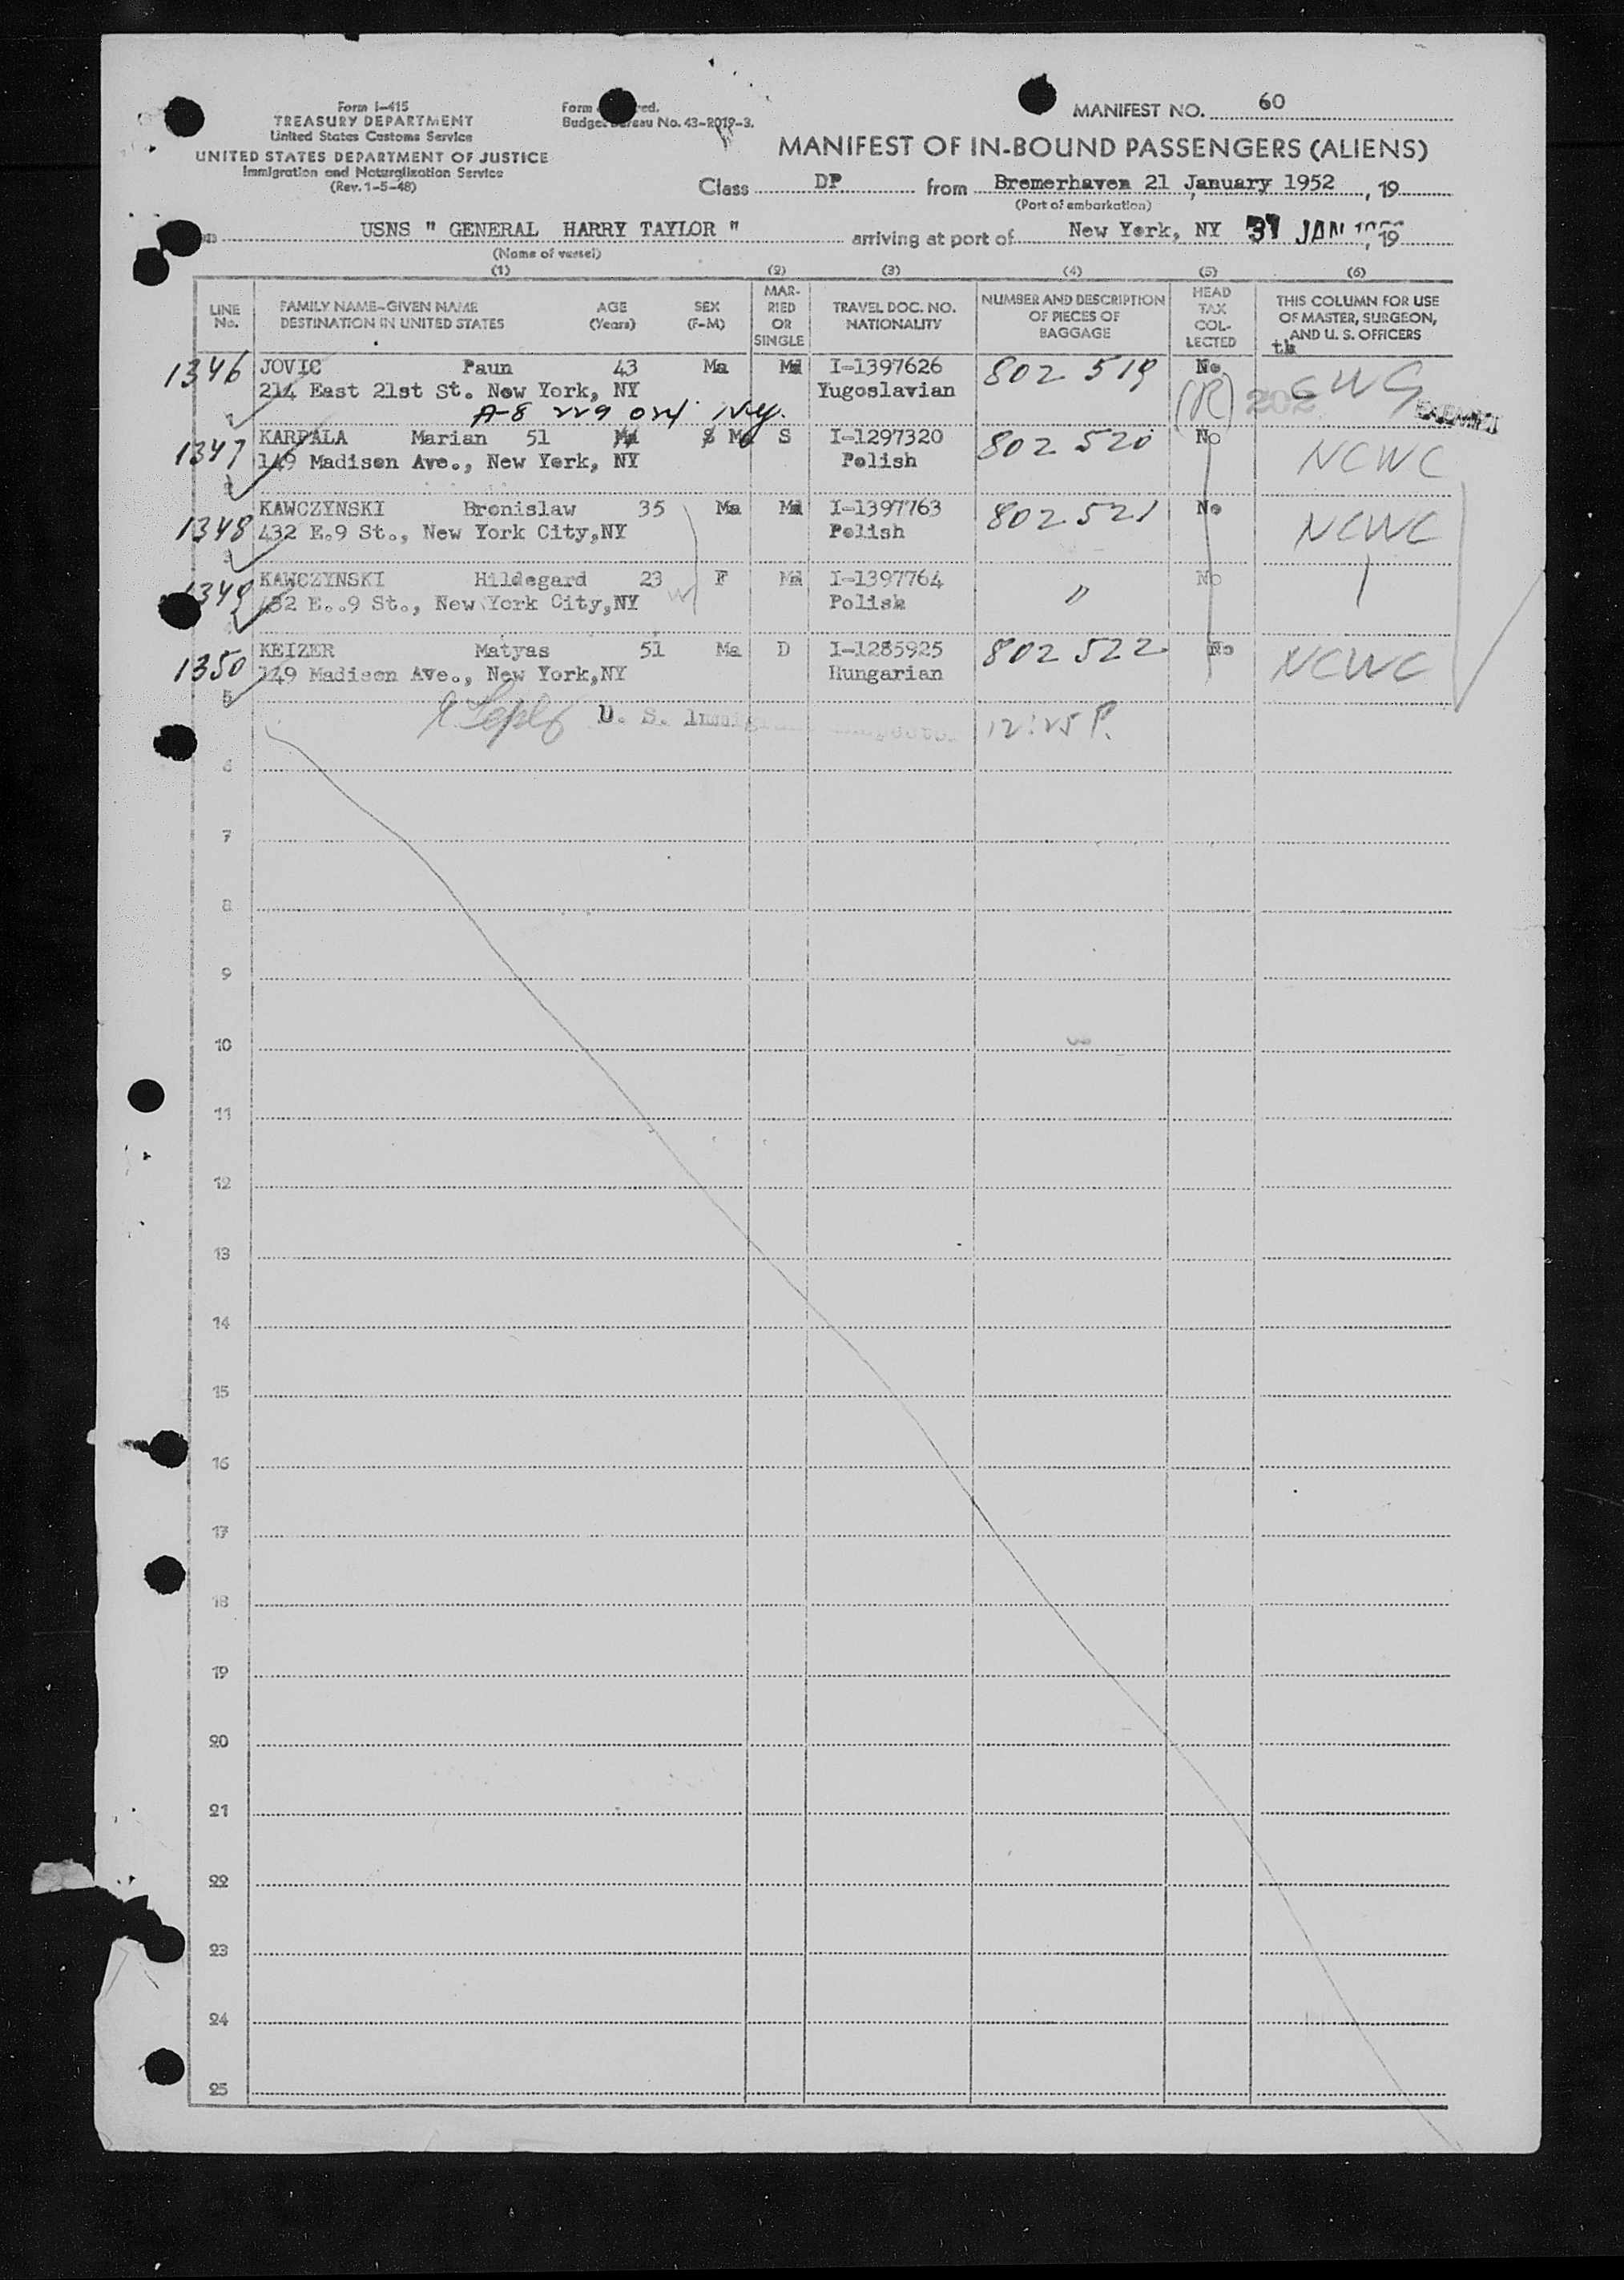 Form I-415
TREASURY DEPARTMENT
United States Customs Service
UNITED STATES DEPARTMENT OF JUSTICE
Immigration and Naturalization Service
(Rev. 1-5-48)
Form
Budget Bureau No. 43-R019-3.
MANIFEST NO. 60
MANIFEST OF IN-BOUND PASSENGERS (ALIENS)
Class DP from Bremerhaven 21 January 1952, 19
(Port of embarkation)
USNS " GENERAL HARRY TAYLOR " arriving at port of New York, NY 31 JAN, 19
(Name of vessel)
(1) (2) (3) (4) (5) (6)
LINE No. FAMILY NAME-GIVEN NAME DESTINATION IN UNITED STATES AGE (Years) SEX (F-M) MARRIED OR SINGLE TRAVEL DOC. NO. NATIONALITY NUMBER AND DESCRIPTION OF PIECES OF BAGGAGE HEAD TAX COLLECTED THIS COLUMN FOR USE OF MASTER, SURGEON, AND U. S. OFFICERS
1346 JOVIC Paun 43 Ma Md I-1397626 802 519 No
214 East 21st St. New York, NY Yugoslavian (R) 202 CWS
1347 KARPALA Marian 51 Ma S I-1297320 802 520 No NCWC
149 Madison Ave., New York, NY Polish
1348 KAWCZYNSKI Bronislaw 35 Ma Md I-1397763 802 521 No NCWC
432 E.9 St., New York City,NY Polish
1349 KAWCZYNSKI Hildegard 23 F Md I-1397764 " No
432 E..9 St., New York City,NY Polish
1350 KEIZER Matyas 51 Ma D I-1285925 802 522 No NCWC
149 Madison Ave., New York,NY Hungarian
5
U. S. 12:25 P.
6
7
8
9
10
11
12
13
14
15
16
17
18
19
20
21
22
23
24
25